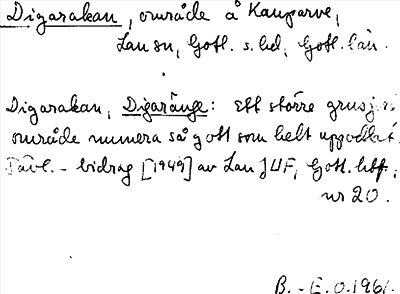 Digarakan, område å Kauparve,
Lau sn, Gotl. s. hd, Gotl. län.
Digarakan, Digaränge: Ett större grusj.
område numera så gott som helt uppodlat.
Tävl.-bidrag [1949] av Lau JUF, Gotl.
nr 20.
B.-E. O. 1961.